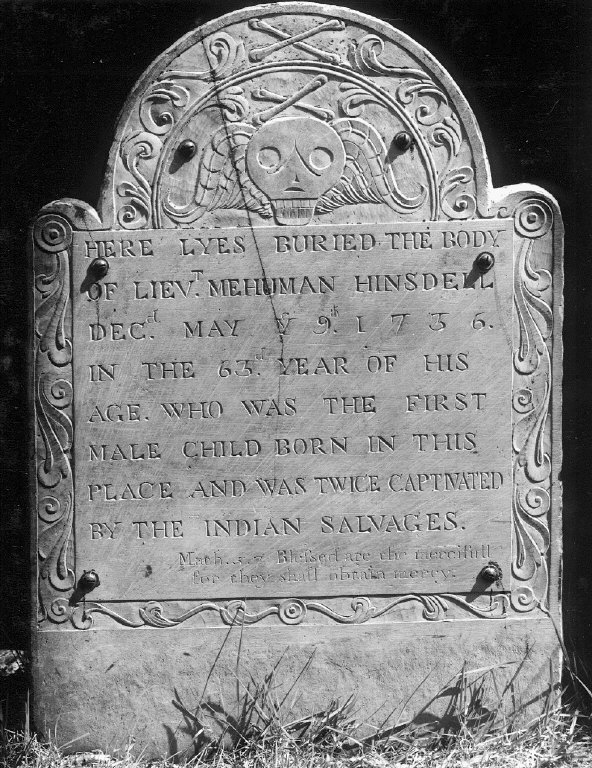 HERE LYES BURIED THE BODY
OF LIEVT. MEHUMAN HINSDELL
DECD. MAY Y 9th. 1736.
IN THE 63d. YEAR OF HIS
AGE. WHO WAS THE FIRST
MALE CHILD BORN IN THIS
PLACE AND WAS TWICE CAPTIVATED
BY THE INDIAN SALVAGES.
Math. 5.7. Blessed are the mercifull
for they shall obtain mercy.